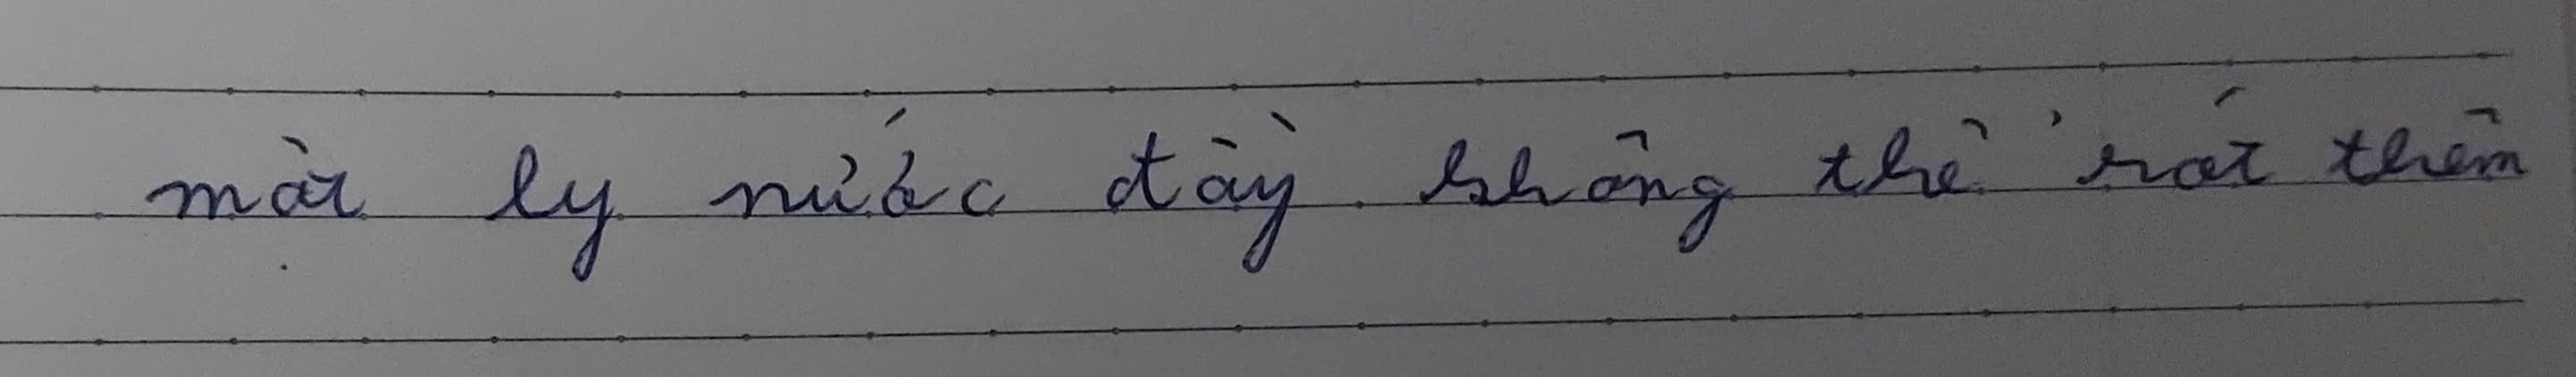 một ly nước đầy không thể rót thêm